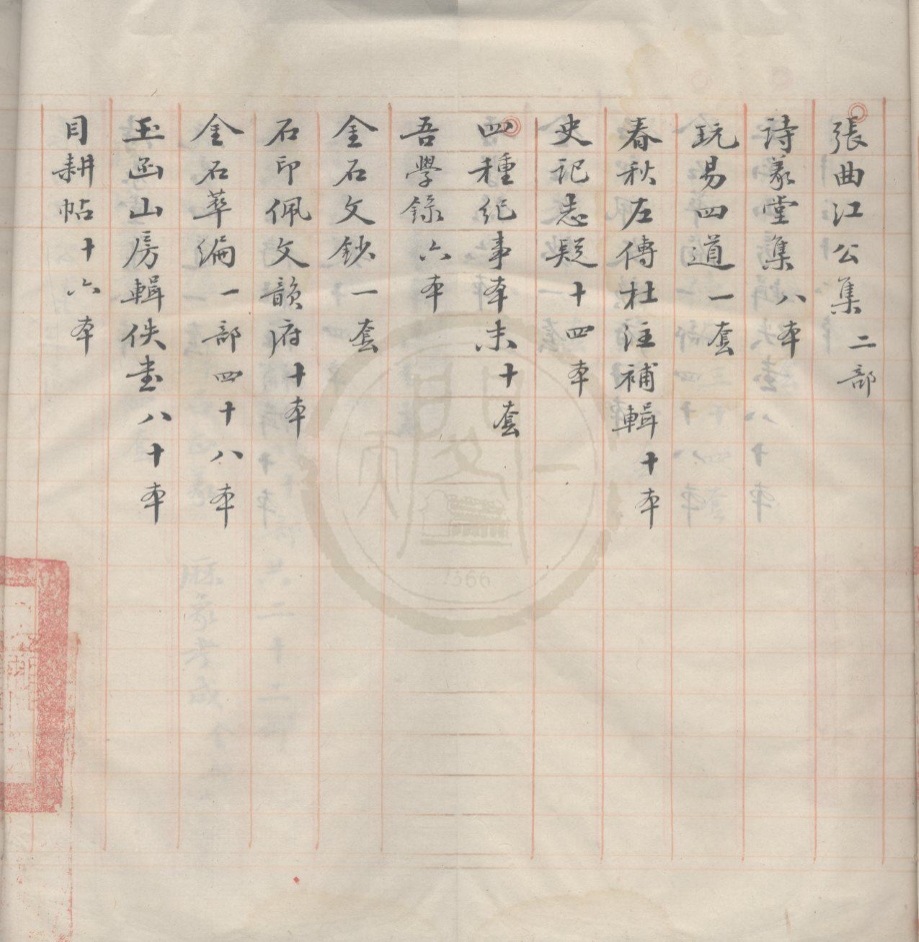 張曲江公集二部
詩義堂集八本
玩易四道一套
春秋左傳杜注補輯十本
史記志疑十四本
四種紀事本末十套
吾學錄六本
金石文鈔一套
石印佩文韻府十本
金石萃編一部四十八本
玉函山房輯佚書八十本
目耕帖十六本
1366